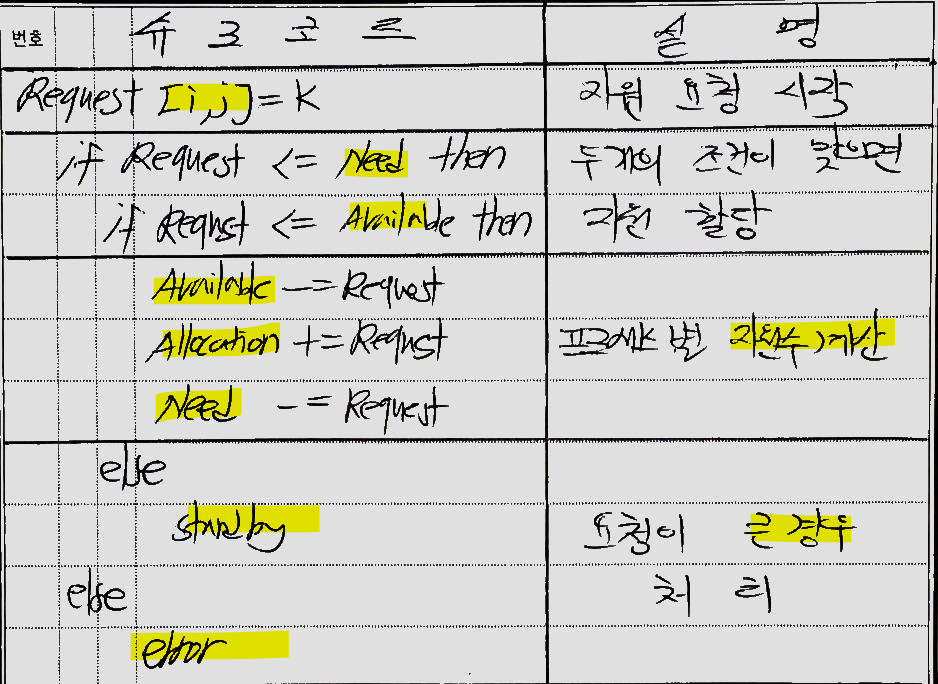 번호 슈 크 코 드 설 명
Request [i,j] = K 자원 요청 시작
if Request <= Need then 두개의 조건이 맞으면
if Request <= Available then 자원 할당
Available -= Request
Allocation += Request 프로세스 별 자원수 계산
Need -= Request
else
standby 요청이 큰 경우
else 처 리
error